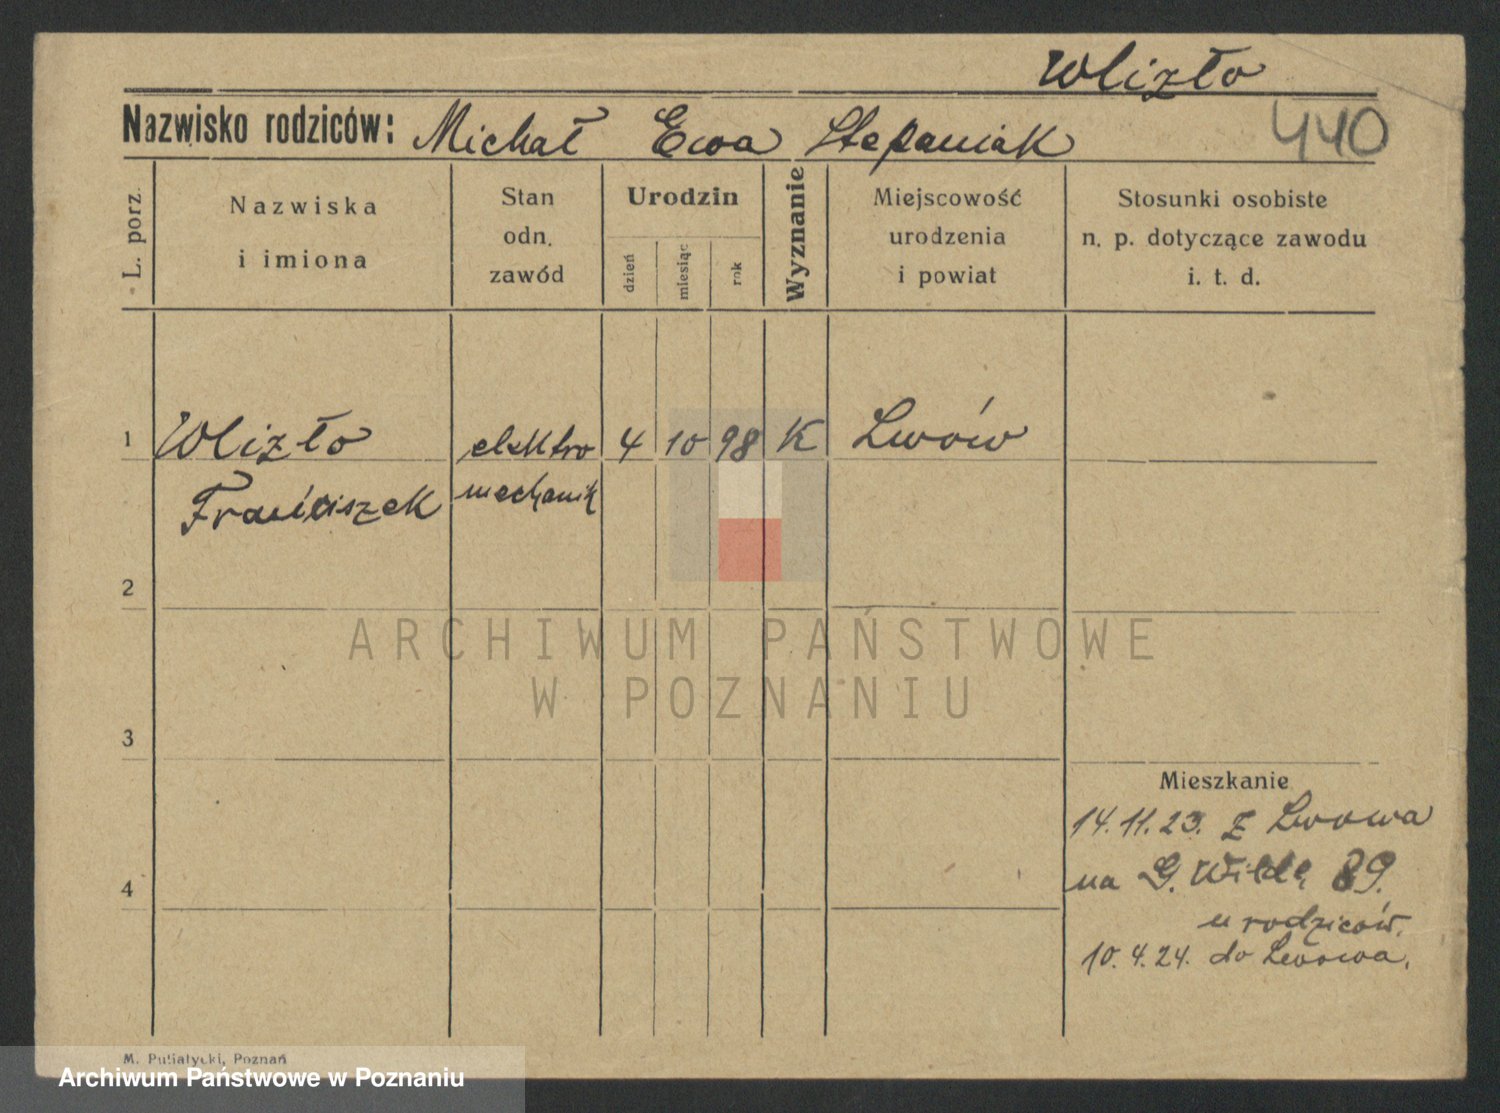 Wlizło
Nazwisko rodziców: Michał Ewa Stepaniak
440
L. porz.
Nazwiska
i imiona
Stan
odn.
zawód
Urodzin
dzień
miesiąc
rok
Wyznanie
Miejscowość
urodzenia
i powiat
Stosunki osobiste
n. p. dotyczące zawodu
i. t. d.
1 Wlizło elektro 4 10 98 K Lwów
Franciszek mechanik
2
ARCHIWUM PAŃSTWOWE
W POZNANIU
3
Mieszkanie
14.11.23. z Lwowa
4
na G. Wildę 89.
u rodziców.
10.4.24. do Lwowa.
M. Putiatycki, Poznań
Archiwum Państwowe w Poznaniu